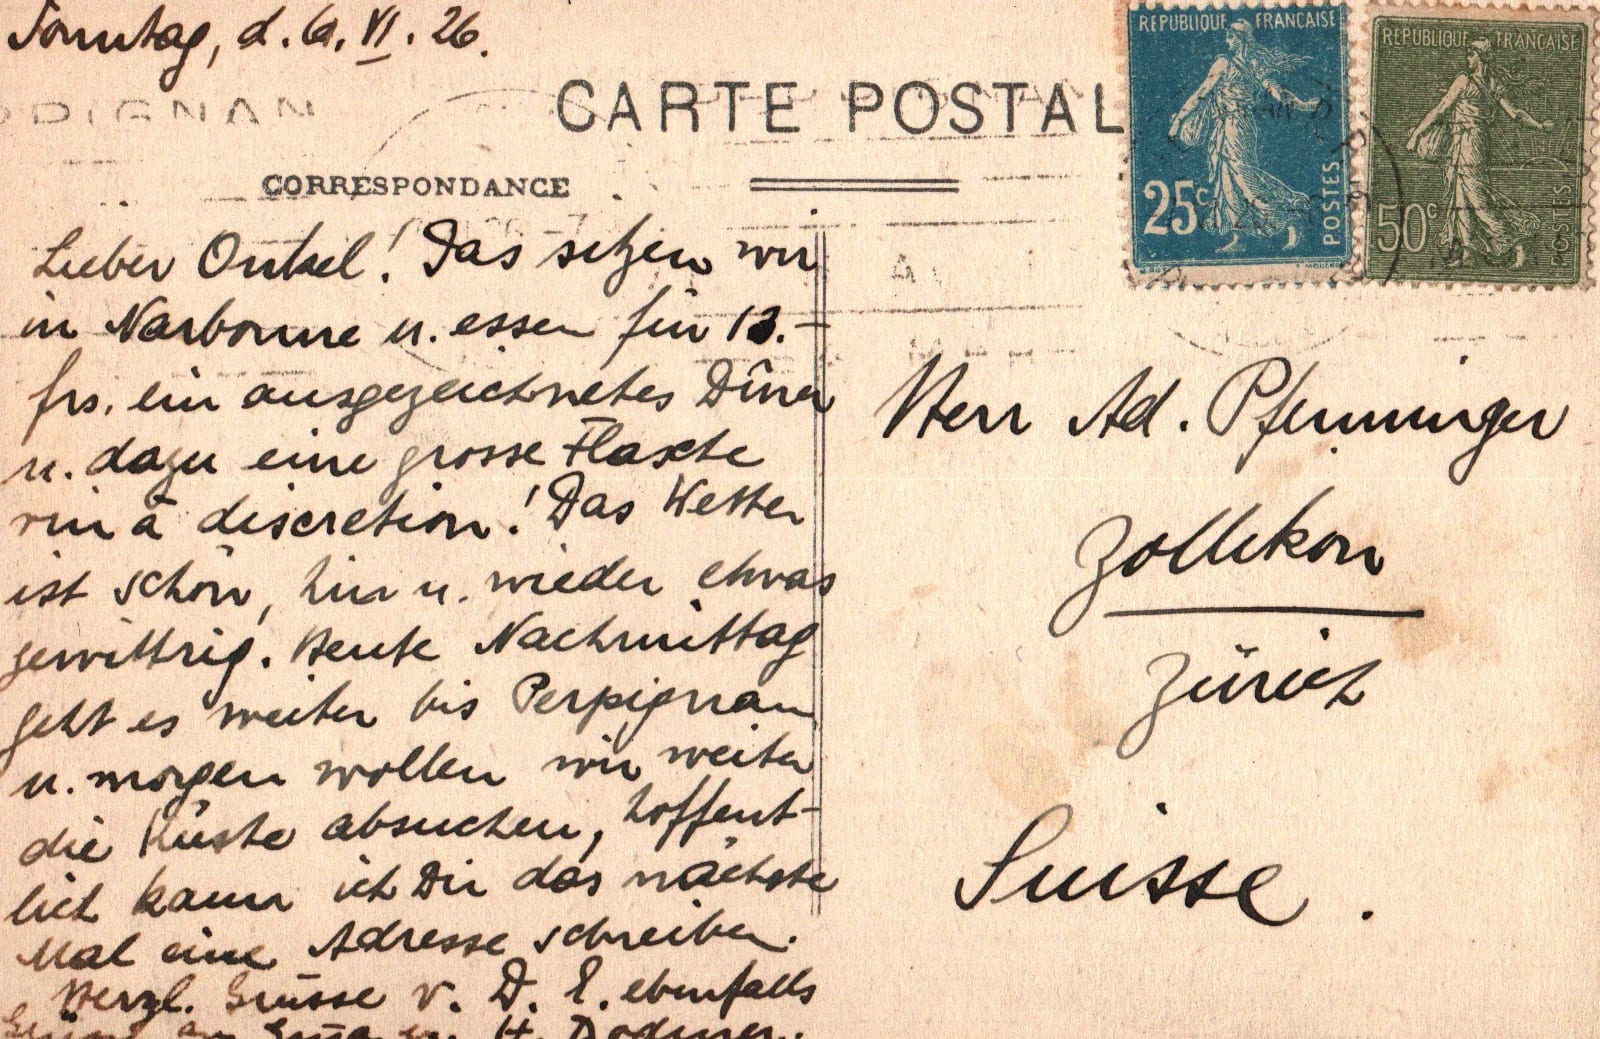 Sonntag, d. 6. VI. 26.
CARTE POSTAL
CORRESPONDANCE
REPUBLIQUE FRANÇAISE
25c
POSTES
REPUBLIQUE FRANÇAISE
50c
POSTES
Lieber Onkel! Das sitzen wir
in Narbonne u. essen für 13.–
frs. ein ausgezeichnetes Dîner
u. dazu eine grosse Flasche
vin à discretion! Das Wetter
ist schön, hin u. wieder etwas
gewittrig. Heute Nachmittag
geht es weiter bis Perpignan
u. morgen wollen wir weiter
die Küste absuchen, hoffent-
lich kann ich Dir das nächste
Mal eine Adresse schreiben.
Herzl. Grüsse v. D. E. ebenfalls
H.
Herr Ad. Pfenninger
Zollikon
Zürich
Suisse.